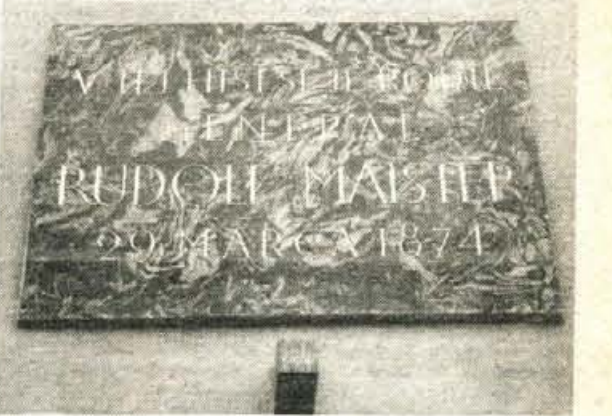 V TEJ HIŠI SE JE RODIL
GENERAL
RUDOLF MAISTER
29 MARCA 1874